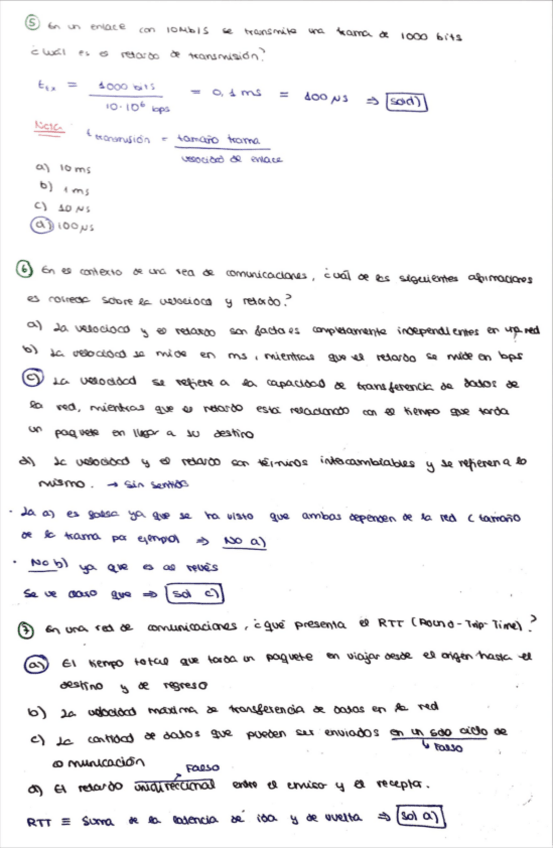 ⑤ En un enlace con 10Mb/s se transmite una trama de 1000 bits
¿cuál es el retardo de transmisión?
t_tx = 1000 bits / 10·10⁶ bps = 0,1 ms = 100 µs ⇒ sol d)
Nota: t transmisión = tamaño trama / velocidad de enlace
a) 10 ms
b) 1 ms
c) 10 µs
d) 100 µs
⑥ En el contexto de una red de comunicaciones, ¿cuál de las siguientes afirmaciones
es correcta sobre la velocidad y retardo?
a) La velocidad y el retardo son factores completamente independientes en una red
b) La velocidad se mide en ms, mientras que el retardo se mide en bps
c) La velocidad se refiere a la capacidad de transferencia de datos de
la red, mientras que el retardo está relacionado con el tiempo que tarda
un paquete en llegar a su destino
d) La velocidad y el retardo son términos intercambiables y se refieren a lo
mismo. → sin sentido
· La a) es falsa ya que se ha visto que ambas dependen de la red (tamaño
de la trama por ejemplo) ⇒ No a)
· No b) ya que es al revés
Se ve claro que ⇒ sol c)
⑦ En una red de comunicaciones, ¿qué presenta el RTT (Round-Trip-Time)?
a) El tiempo total que tarda un paquete en viajar desde el origen hasta el
destino y de regreso
b) La velocidad máxima de transferencia de datos en la red
c) La cantidad de datos que pueden ser enviados en un solo ciclo de
↳ Falso
comunicación
Falso
d) El retardo unidireccional entre el emisor y el receptor.
RTT ≡ Suma de la latencia de ida y de vuelta ⇒ sol a)